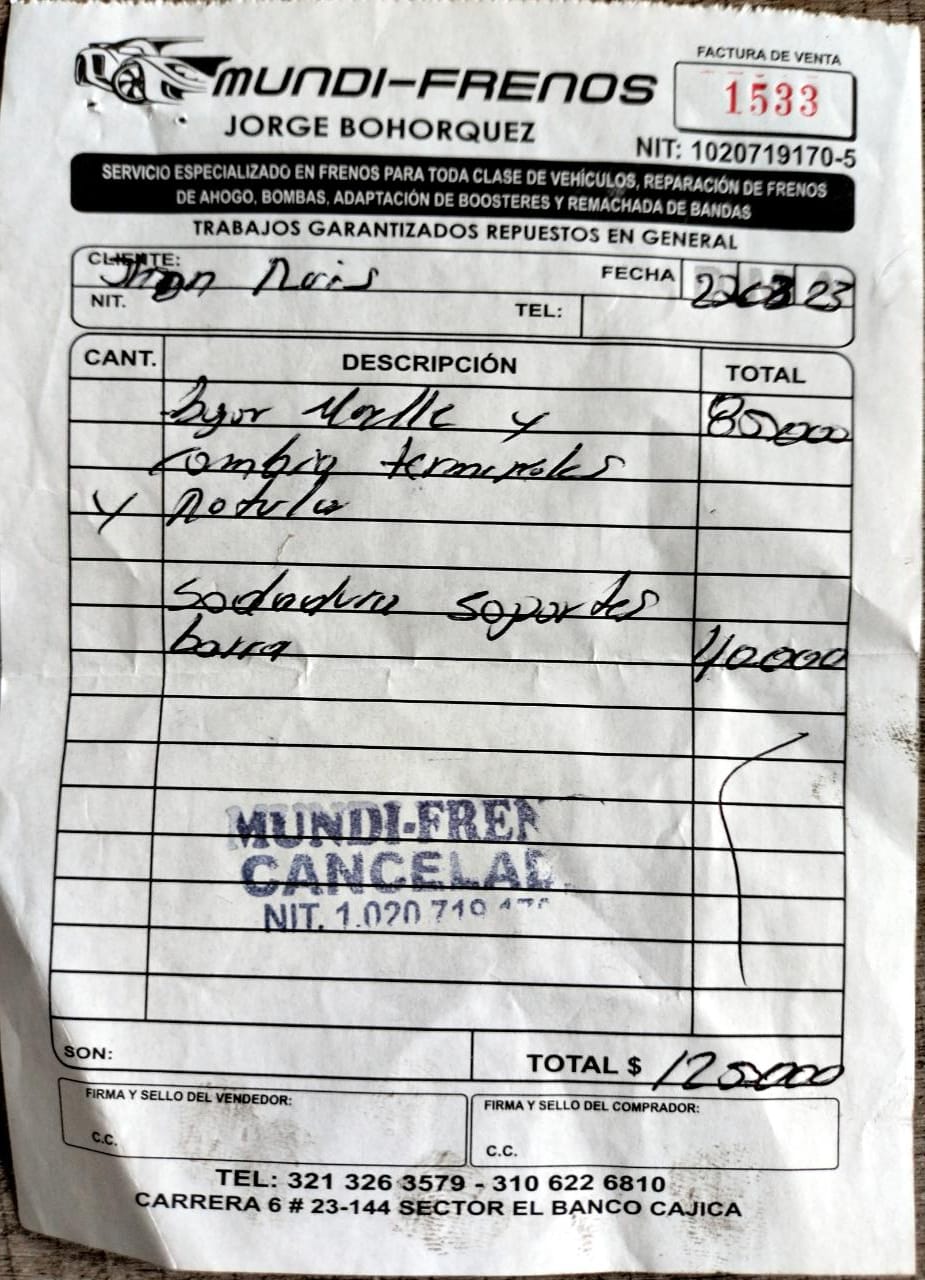 MUNDI-FRENOS
JORGE BOHORQUEZ
FACTURA DE VENTA
1533
NIT: 1020719170-5
SERVICIO ESPECIALIZADO EN FRENOS PARA TODA CLASE DE VEHÍCULOS, REPARACIÓN DE FRENOS
DE AHOGO, BOMBAS, ADAPTACIÓN DE BOOSTERES Y REMACHADA DE BANDAS
TRABAJOS GARANTIZADOS REPUESTOS EN GENERAL
CLIENTE: Jhon FECHA 22 03 23
NIT. TEL:
CANT. DESCRIPCIÓN TOTAL
y 85000
cambia terminales
y Rotula
soldadura soportes
barra 40.000
MUNDI-FREN
CANCELAD
NIT. 1.020 719
SON: TOTAL $ 125.000
FIRMA Y SELLO DEL VENDEDOR: FIRMA Y SELLO DEL COMPRADOR:
C.C. C.C.
TEL: 321 326 3579 - 310 622 6810
CARRERA 6 # 23-144 SECTOR EL BANCO CAJICA